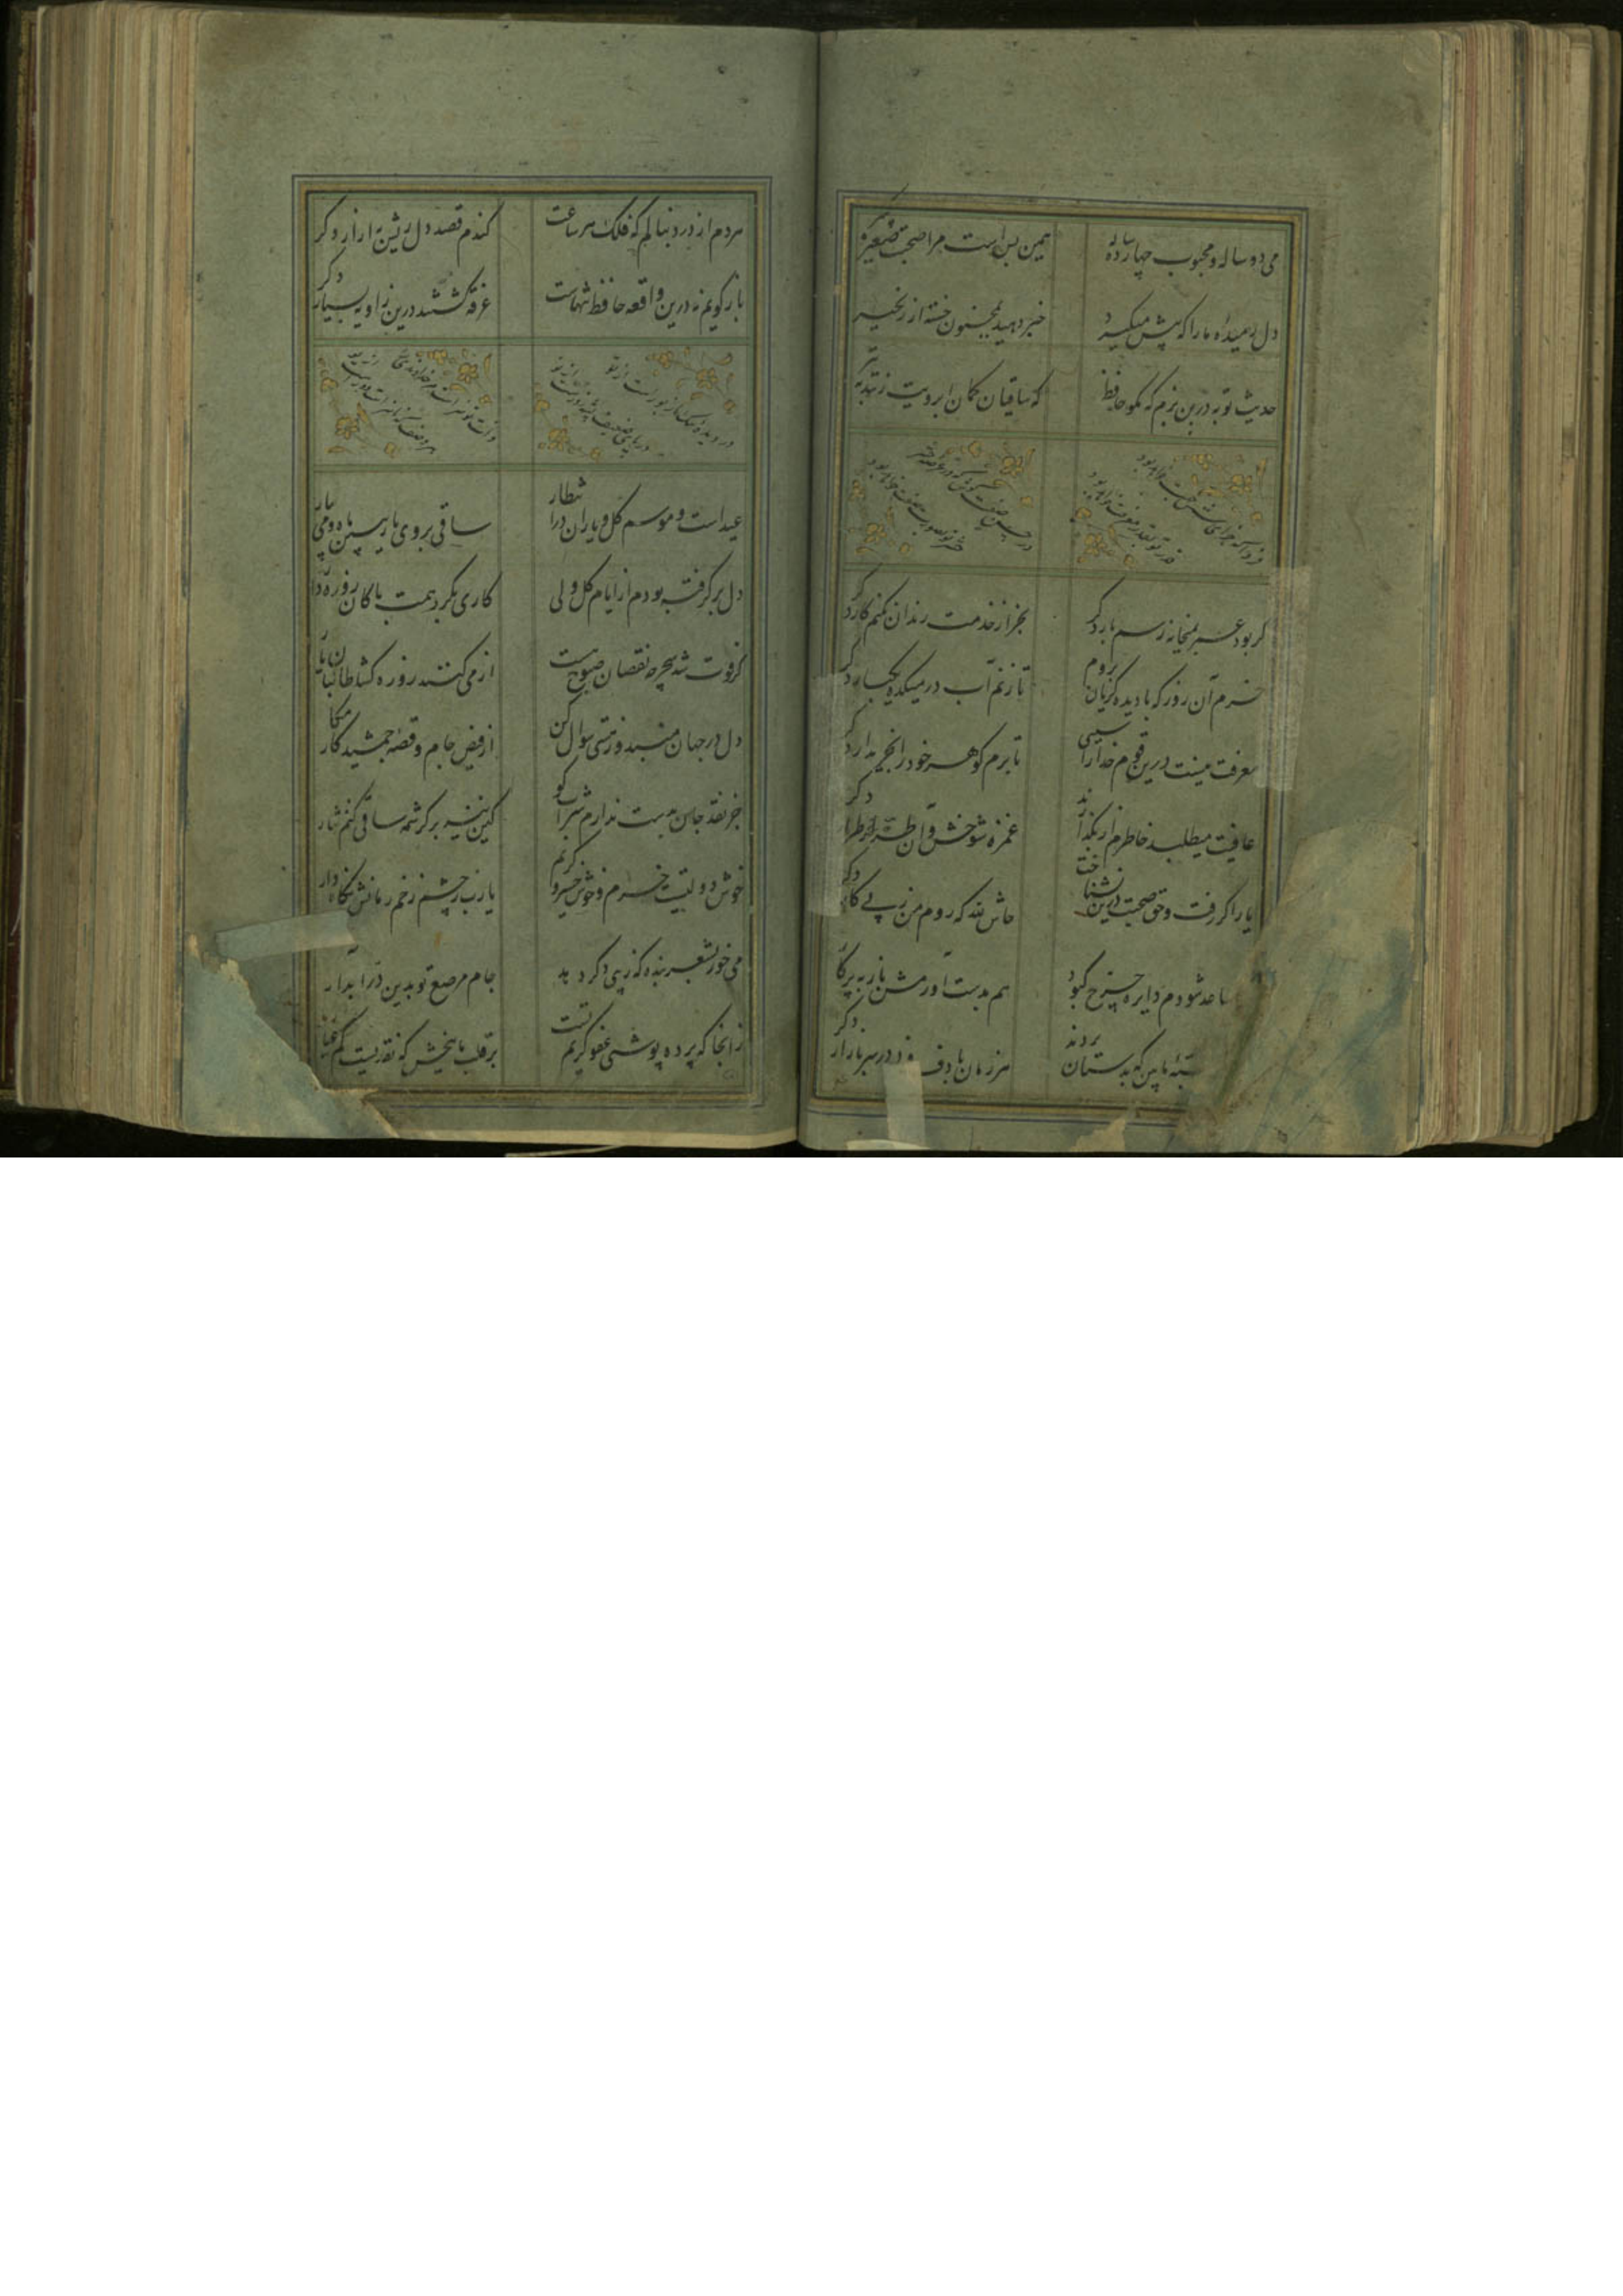 می دو ساله و محبوب چهارده ساله
همین بس است مرا صحبت صغیر و کبیر
دل رمیده ما را که پیش میگیرد
خبر دهید بمجنون خسته از زنجیر
حدیث توبه درین بزم که مگو حافظ
که ساقیان کمان ابرویت زنند به تیر
فردا که جزای شش جهت خواهد بود
قدر تو بقدر معرفت خواهد بود
در حسن صفت کوش که در عرصه حشر
حشر تو بصورت صفت خواهد بود
گر بود عمر بمیخانه رسم بار دگر
بجز از خدمت رندان نکنم کار دگر
خرم آن روز که با دیده گریان بروم
تا زنم آب در میکده یکبار دگر
معرفت نیست درین قوم خدا را سببی
تا برم گوهر خود را بخریدار دگر
عافیت میطلبد خاطرم ار بگذارند
غمزه شوخش و آن طره طرار دگر
یار اگر رفت و حق صحبت دیرین نشناخت
حاش لله که روم من ز پی یار دگر
ساعد شودم دایره چرخ کبود
هم بدست آورمش باز به پرگار دگر
بسته ما بین که بدستان بردند
هر زمان با دف و در سر بازار دگر
هر دم از درد بنالم که فلک هر ساعت
کندم قصد دل ریش بازار دگر
باز گویم نه درین واقعه حافظ تنهاست
غرقه گشتند درین زاویه بسیار دگر
در دیده
در پای ضعیف پشه
ذات تو سزاست مر خداوندی را
هر وصف که ناسزاست دورست
عید است و موسم گل و یاران در انتظار
ساقی بروی یار ببین ماه و می بیار
دل برگرفته بودم از ایام گل ولی
کاری بکرد همت پاکان روزه دار
گر فوت شد سحر چه نقصان صبوح هست
از می کنند روزه گشا طالبان یار
دل در جهان مبند و ز مستی سؤال کن
از فیض جام و قصه جمشید کامکار
جز نقد جان بدست ندارم شراب کو
کین نیز بر کرشمه ساقی کنم نثار
خوش دولتیست خرم و خوش خسرو کریم
یا رب ز چشم زخم زمانش نگاه دار
می خور بشعر بنده که زیبی دگر دهد
جام مرصع تو بدین در آبدار
زانجا که پرده پوشی عفو کریم تست
بر قلب ما ببخش که نقدیست کم عیار